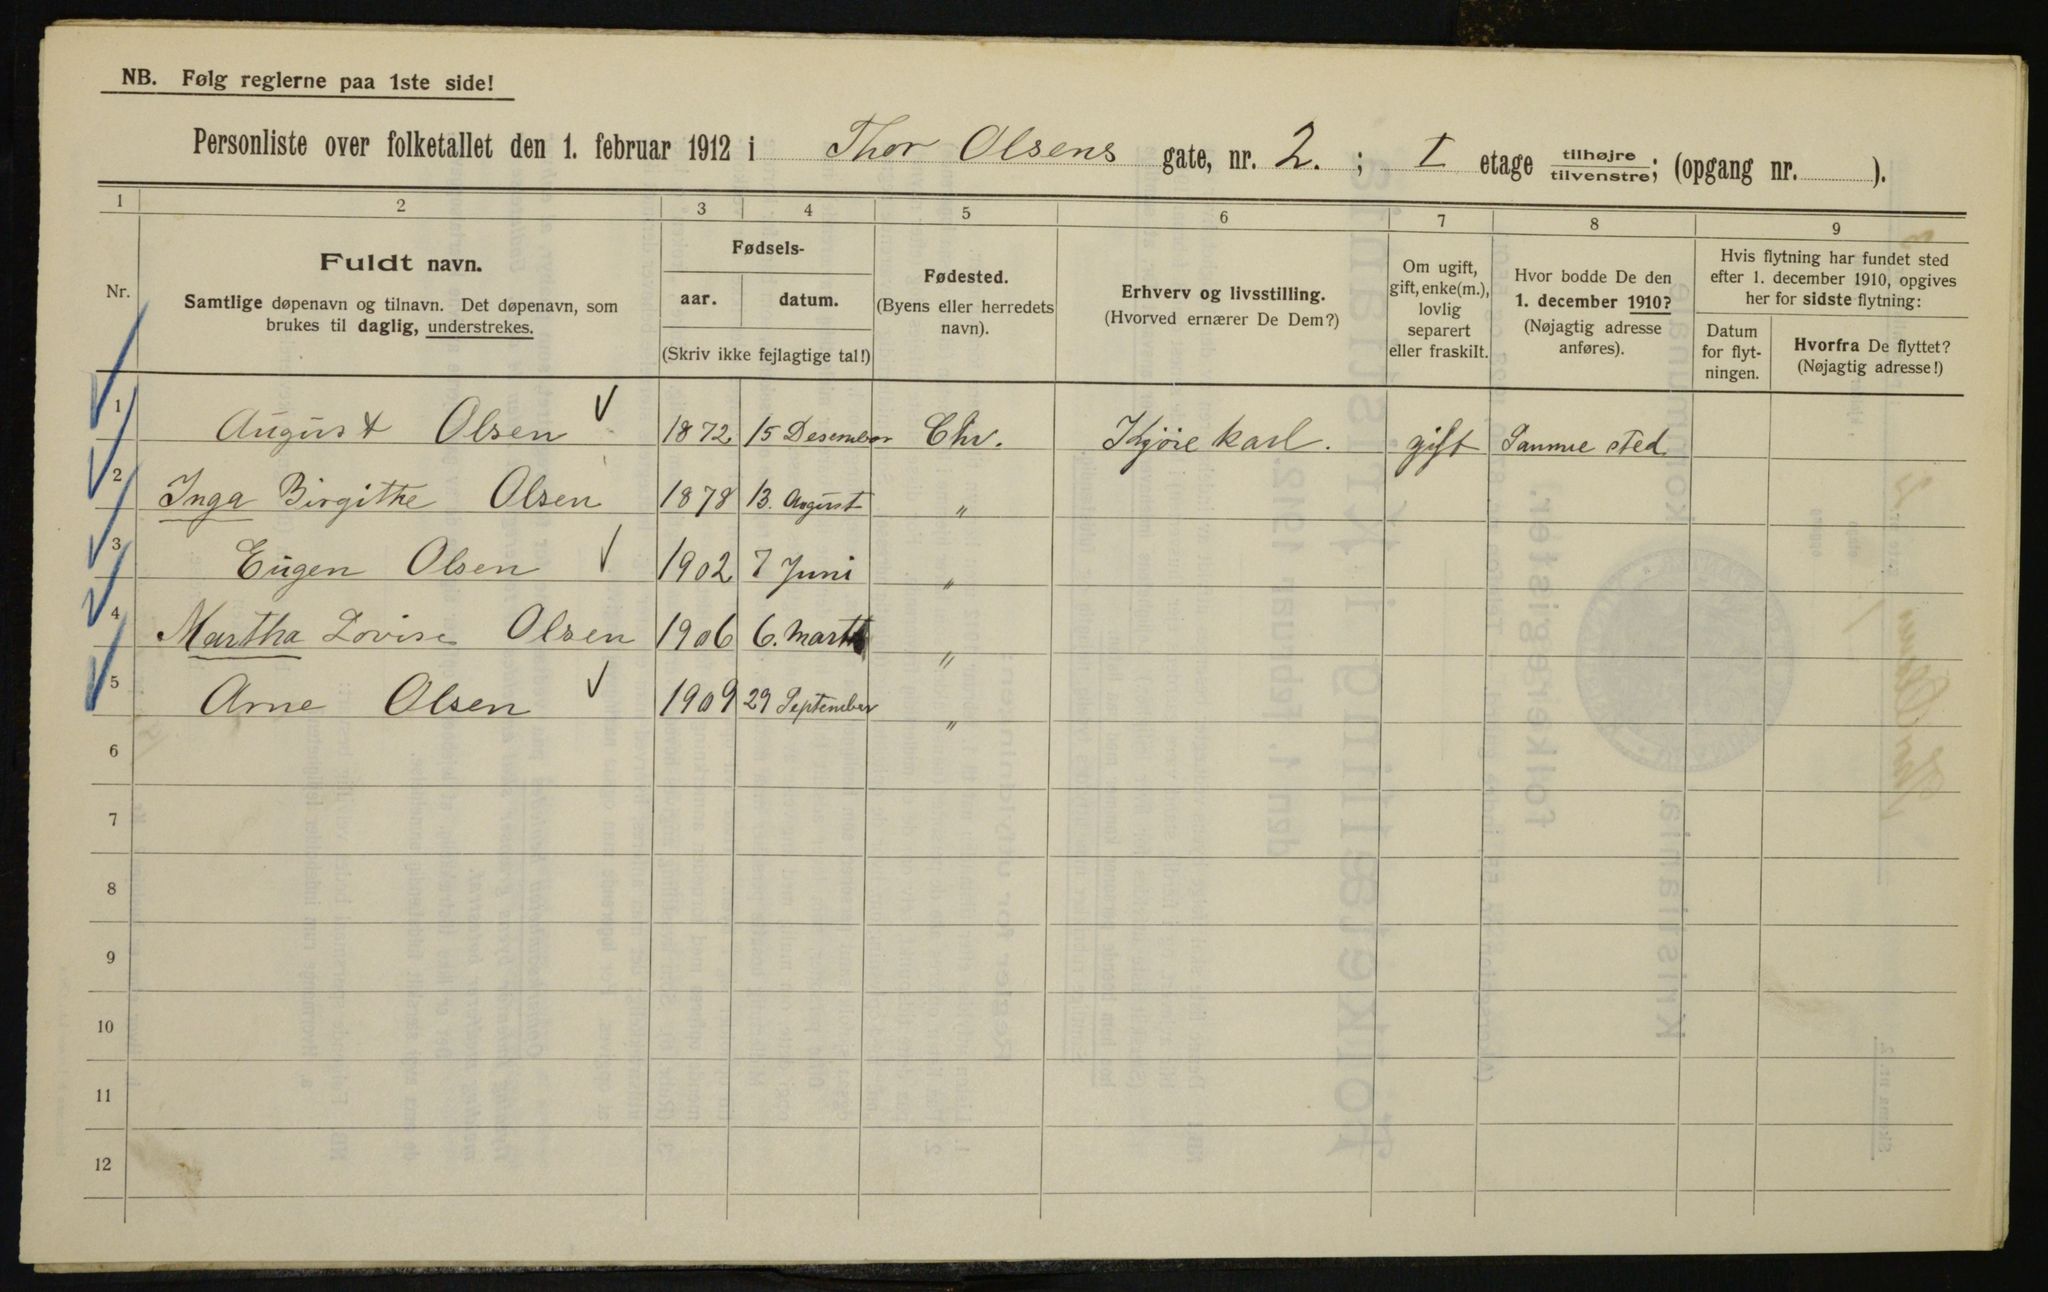 NB. Følg reglerne paa 1ste side!
Personliste over folketallet den 1. februar 1912 i Thor Olsens gate, nr. 2. ; I etage tilhøjre tilvenstre; (opgang nr. ).
1 2 3 4 5 6 7 8 9
Nr.
Fuldt navn.
Samtlige døpenavn og tilnavn. Det døpenavn, som
brukes til daglig, understrekes.
Fødsels-
aar. datum.
(Skriv ikke fejlagtige tal!)
Fødested.
(Byens eller herredets
navn).
Erhverv og livsstilling.
(Hvorved ernærer De Dem?)
Om ugift,
gift, enke(m.),
lovlig
separert
eller fraskilt.
Hvor bodde De den
1. december 1910?
(Nøjagtig adresse
anføres).
Hvis flytning har fundet sted
efter 1. december 1910, opgives
her for sidste flytning:
Datum
for flyt-
ningen.
Hvorfra De flyttet?
(Nøjagtig adresse!)
1 August Olsen 1872 15 Desember Chr. Kjøre karl. gift Samme sted
2 Inga Birgithe Olsen 1878 13. August "
3 Eugen Olsen 1902 7 Juni "
4 Martha Lovise Olsen 1906 6. Marth "
5 Arne Olsen 1909 29 September "
6
7
8
9
10
11
12